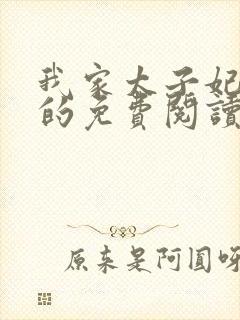 我家太子妃
的免費閱讀
原来是阿圓呀